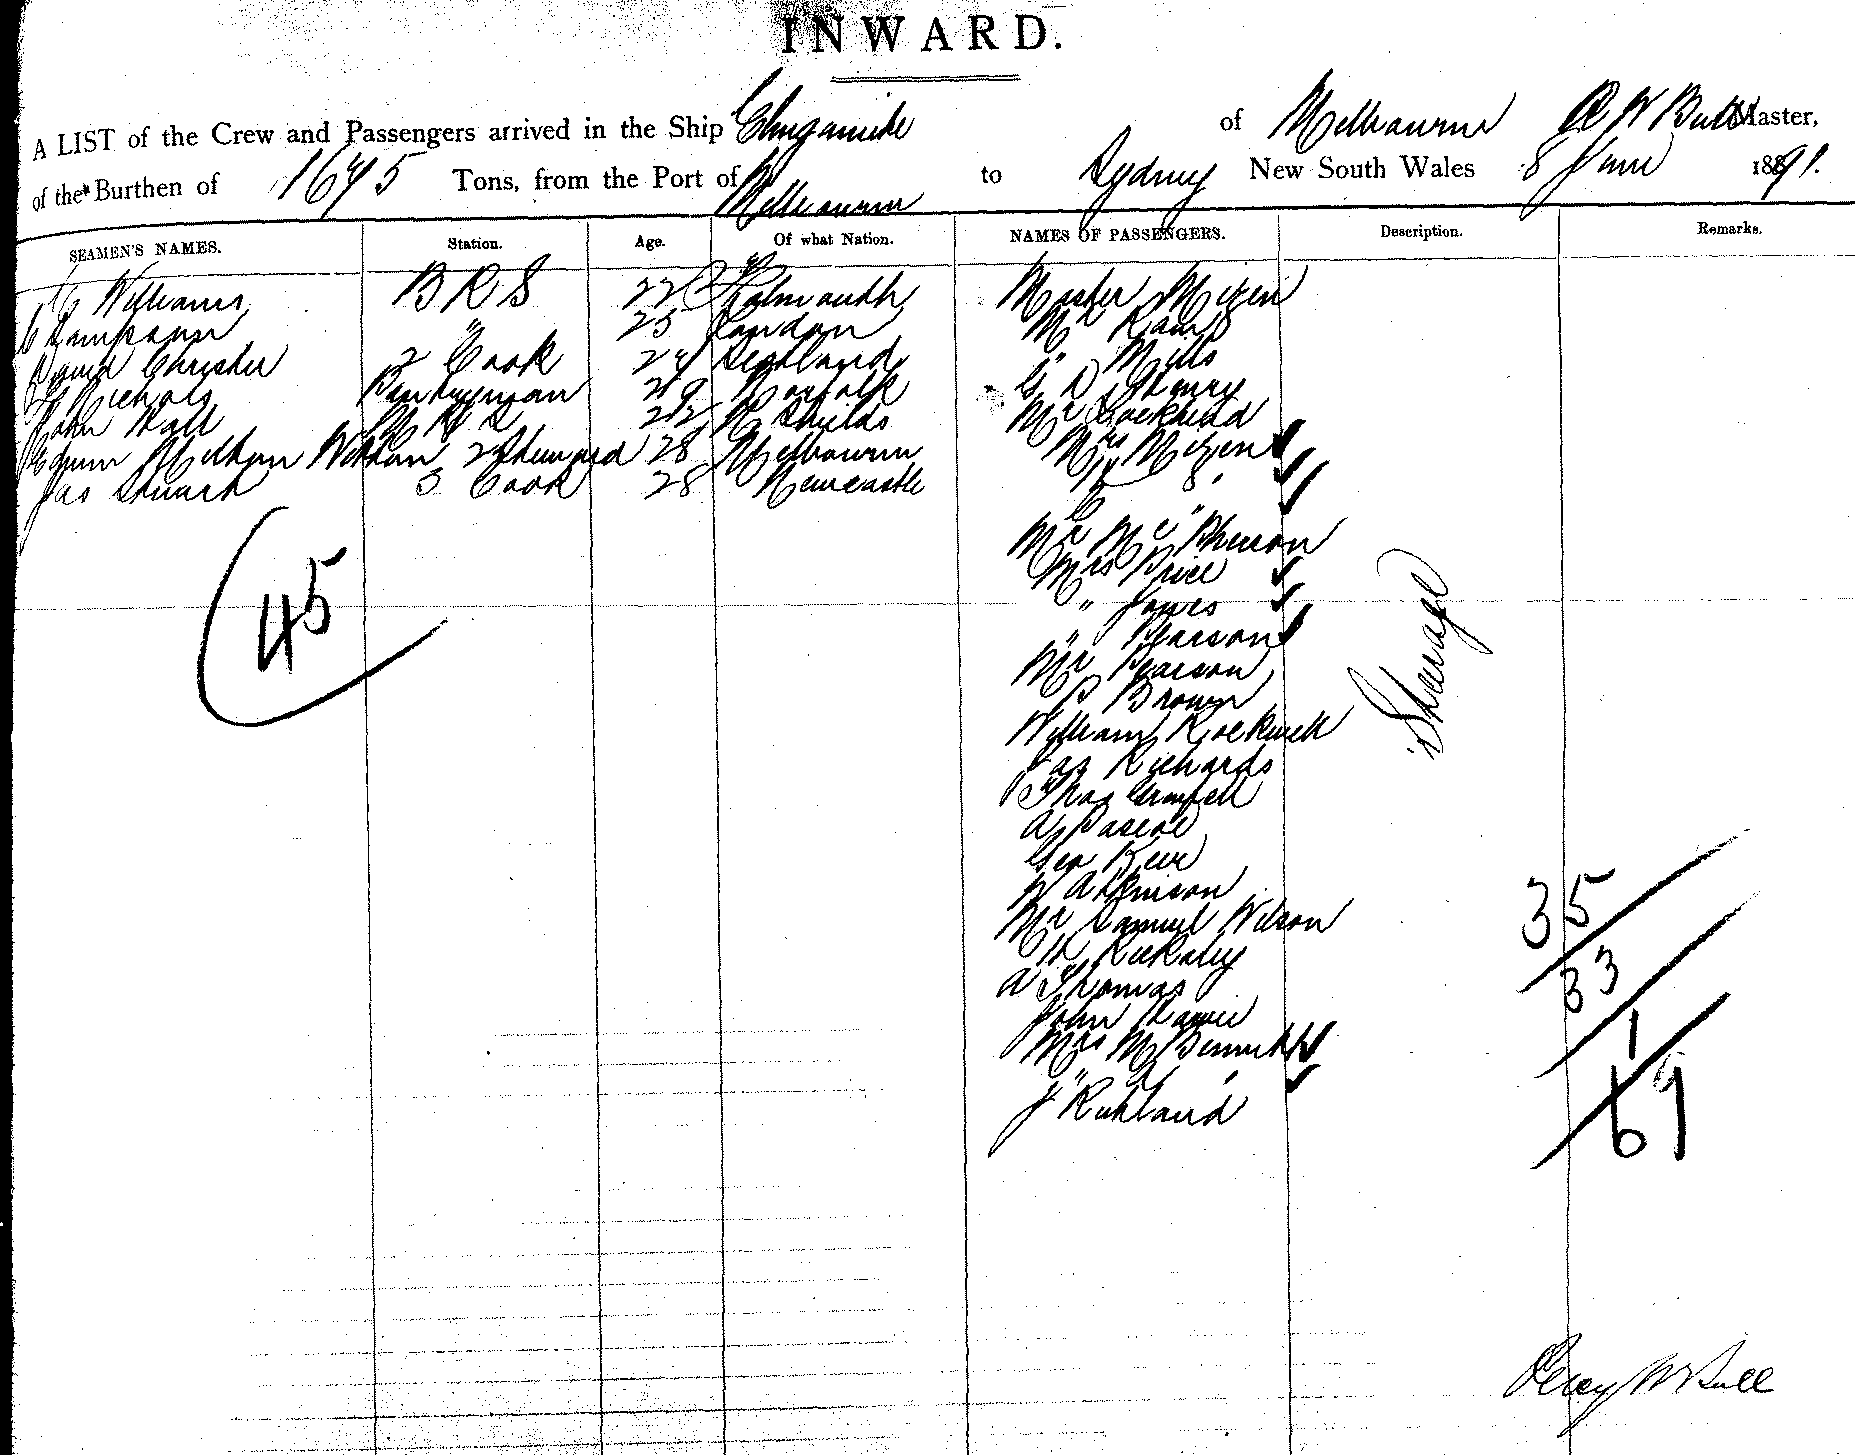 INWARD.
A LIST of the Crew and Passengers arrived in the Ship Elingamite of Melbourne P W Bull Master,
of the Burthen of 1675 Tons, from the Port of Melbourne to Sydney New South Wales 8 June 1891.
SEAMEN'S NAMES. Station. Age. Of what Nation. NAMES OF PASSENGERS. Description. Remarks.
Williams B R S 22 Falmouth Master Mizen
Sampson " 25 London Mr
David Christer 2 Cook 24 Scotland " Mills
Nichols Pantryman 29 Norfolk G Henry
John Hall 22 N Shields Mr Lockhead
Edwin 2 Steward 28 Melbourne Mrs Mizen
Jas Stuart 3 Cook 28 Newcastle
45
Mr McPherson
Mrs Price
" Jones
" Pearson
Mr Pearson
B Brown
William
Jas Richards
Thos
A Pascoe
Geo Keir
W Atkinson
Mr Samuel Wilson
A Thomas
John
Mrs M Bennett
" "
J
Steerage
35
33
1
69
Percy W Bull